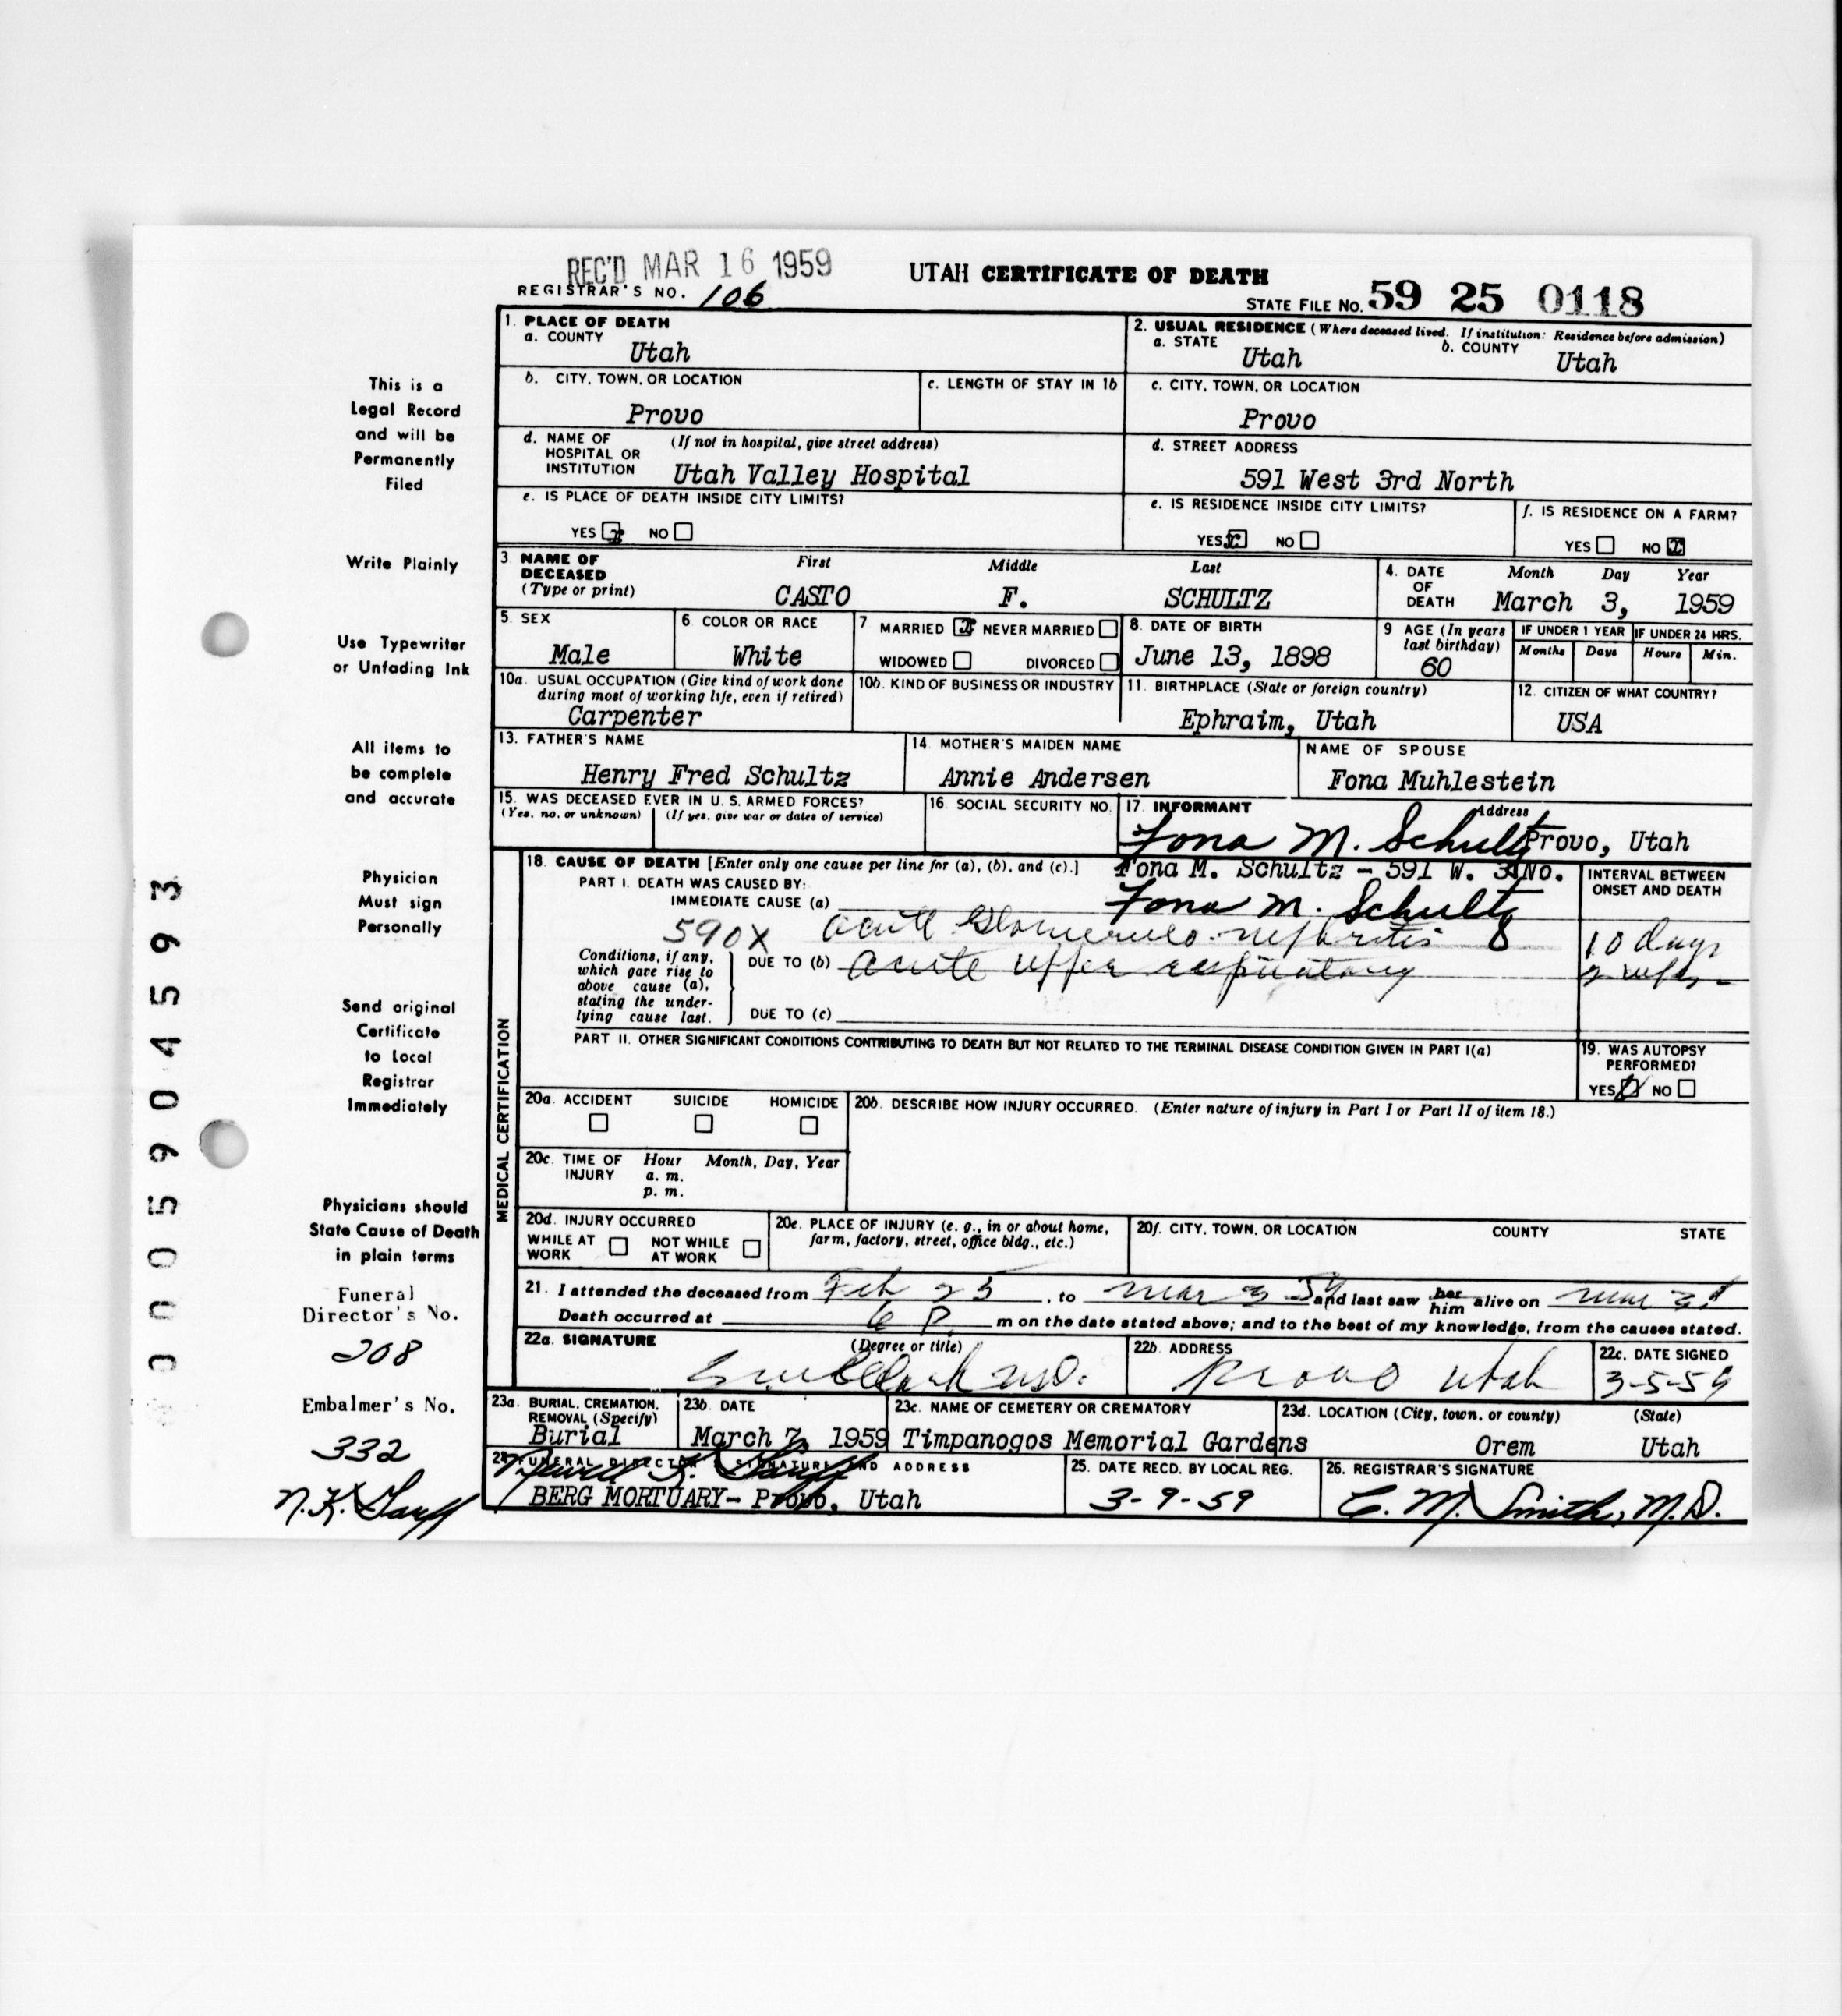 REC'D MAR 16 1959
UTAH CERTIFICATE OF DEATH
REGISTRAR'S NO. 106
STATE FILE NO. 59 25 0118
1. PLACE OF DEATH
a. COUNTY
Utah
2. USUAL RESIDENCE (Where deceased lived. If institution: Residence before admission)
a. STATE Utah b. COUNTY Utah
b. CITY, TOWN, OR LOCATION
Provo
c. LENGTH OF STAY IN 1b
c. CITY, TOWN, OR LOCATION
Provo
d. NAME OF HOSPITAL OR INSTITUTION (If not in hospital, give street address)
Utah Valley Hospital
d. STREET ADDRESS
591 West 3rd North
e. IS PLACE OF DEATH INSIDE CITY LIMITS?
YES x NO
e. IS RESIDENCE INSIDE CITY LIMITS?
YES x NO
f. IS RESIDENCE ON A FARM?
YES NO x
3. NAME OF DECEASED (Type or print)
First Middle Last
CASTO F. SCHULTZ
4. DATE OF DEATH
Month Day Year
March 3, 1959
5. SEX
Male
6. COLOR OR RACE
White
7 MARRIED x NEVER MARRIED
WIDOWED DIVORCED
8. DATE OF BIRTH
June 13, 1898
9 AGE (In years last birthday)
60
IF UNDER 1 YEAR
Months Days
IF UNDER 24 HRS.
Hours Min.
10a. USUAL OCCUPATION (Give kind of work done during most of working life, even if retired)
Carpenter
10b. KIND OF BUSINESS OR INDUSTRY
11. BIRTHPLACE (State or foreign country)
Ephraim, Utah
12. CITIZEN OF WHAT COUNTRY?
USA
13. FATHER'S NAME
Henry Fred Schultz
14. MOTHER'S MAIDEN NAME
Annie Andersen
NAME OF SPOUSE
Fona Muhlestein
15. WAS DECEASED EVER IN U. S. ARMED FORCES?
(Yes, no, or unknown) (If yes, give war or dates of service)
16. SOCIAL SECURITY NO.
17. INFORMANT Address
Fona M. Schultz Provo, Utah
Fona M. Schultz - 591 W. 3d No.
Fona M. Schultz
18. CAUSE OF DEATH [Enter only one cause per line for (a), (b), and (c).]
PART I. DEATH WAS CAUSED BY:
IMMEDIATE CAUSE (a)
590X acute glomerulo-nephritis 8
Conditions, if any, which gave rise to above cause (a), stating the underlying cause last.
DUE TO (b) acute upper respiratory
DUE TO (c)
INTERVAL BETWEEN ONSET AND DEATH
10 days
2 wks
PART II. OTHER SIGNIFICANT CONDITIONS CONTRIBUTING TO DEATH BUT NOT RELATED TO THE TERMINAL DISEASE CONDITION GIVEN IN PART I(a)
19. WAS AUTOPSY PERFORMED?
YES x NO
MEDICAL CERTIFICATION
20a. ACCIDENT SUICIDE HOMICIDE
20b. DESCRIBE HOW INJURY OCCURRED. (Enter nature of injury in Part I or Part II of item 18.)
20c. TIME OF INJURY Hour Month, Day, Year
a. m.
p. m.
20d. INJURY OCCURRED
WHILE AT WORK NOT WHILE AT WORK
20e. PLACE OF INJURY (e. g., in or about home, farm, factory, street, office bldg., etc.)
20f. CITY, TOWN, OR LOCATION COUNTY STATE
21. I attended the deceased from Feb 25, to Mar 3 59 and last saw her him alive on Mar 3d
Death occurred at 6 P. m on the date stated above; and to the best of my knowledge, from the causes stated.
22a. SIGNATURE (Degree or title)
M.D.
22b. ADDRESS
Provo Utah
22c. DATE SIGNED
3-5-59
23a. BURIAL, CREMATION, REMOVAL (Specify)
Burial
23b. DATE
March 7, 1959
23c. NAME OF CEMETERY OR CREMATORY
Timpanogos Memorial Gardens
23d. LOCATION (City, town, or county) (State)
Orem Utah
24. FUNERAL DIRECTOR'S SIGNATURE AND ADDRESS
BERG MORTUARY- Provo, Utah
25. DATE RECD. BY LOCAL REG.
3-9-59
26. REGISTRAR'S SIGNATURE
C. M. Smith, M.D.
This is a
Legal Record
and will be
Permanently
Filed
Write Plainly
Use Typewriter
or Unfading Ink
All items to
be complete
and accurate
Physician
Must sign
Personally
Send original
Certificate
to Local
Registrar
Immediately
Physicians should
State Cause of Death
in plain terms
Funeral
Director's No.
208
Embalmer's No.
332